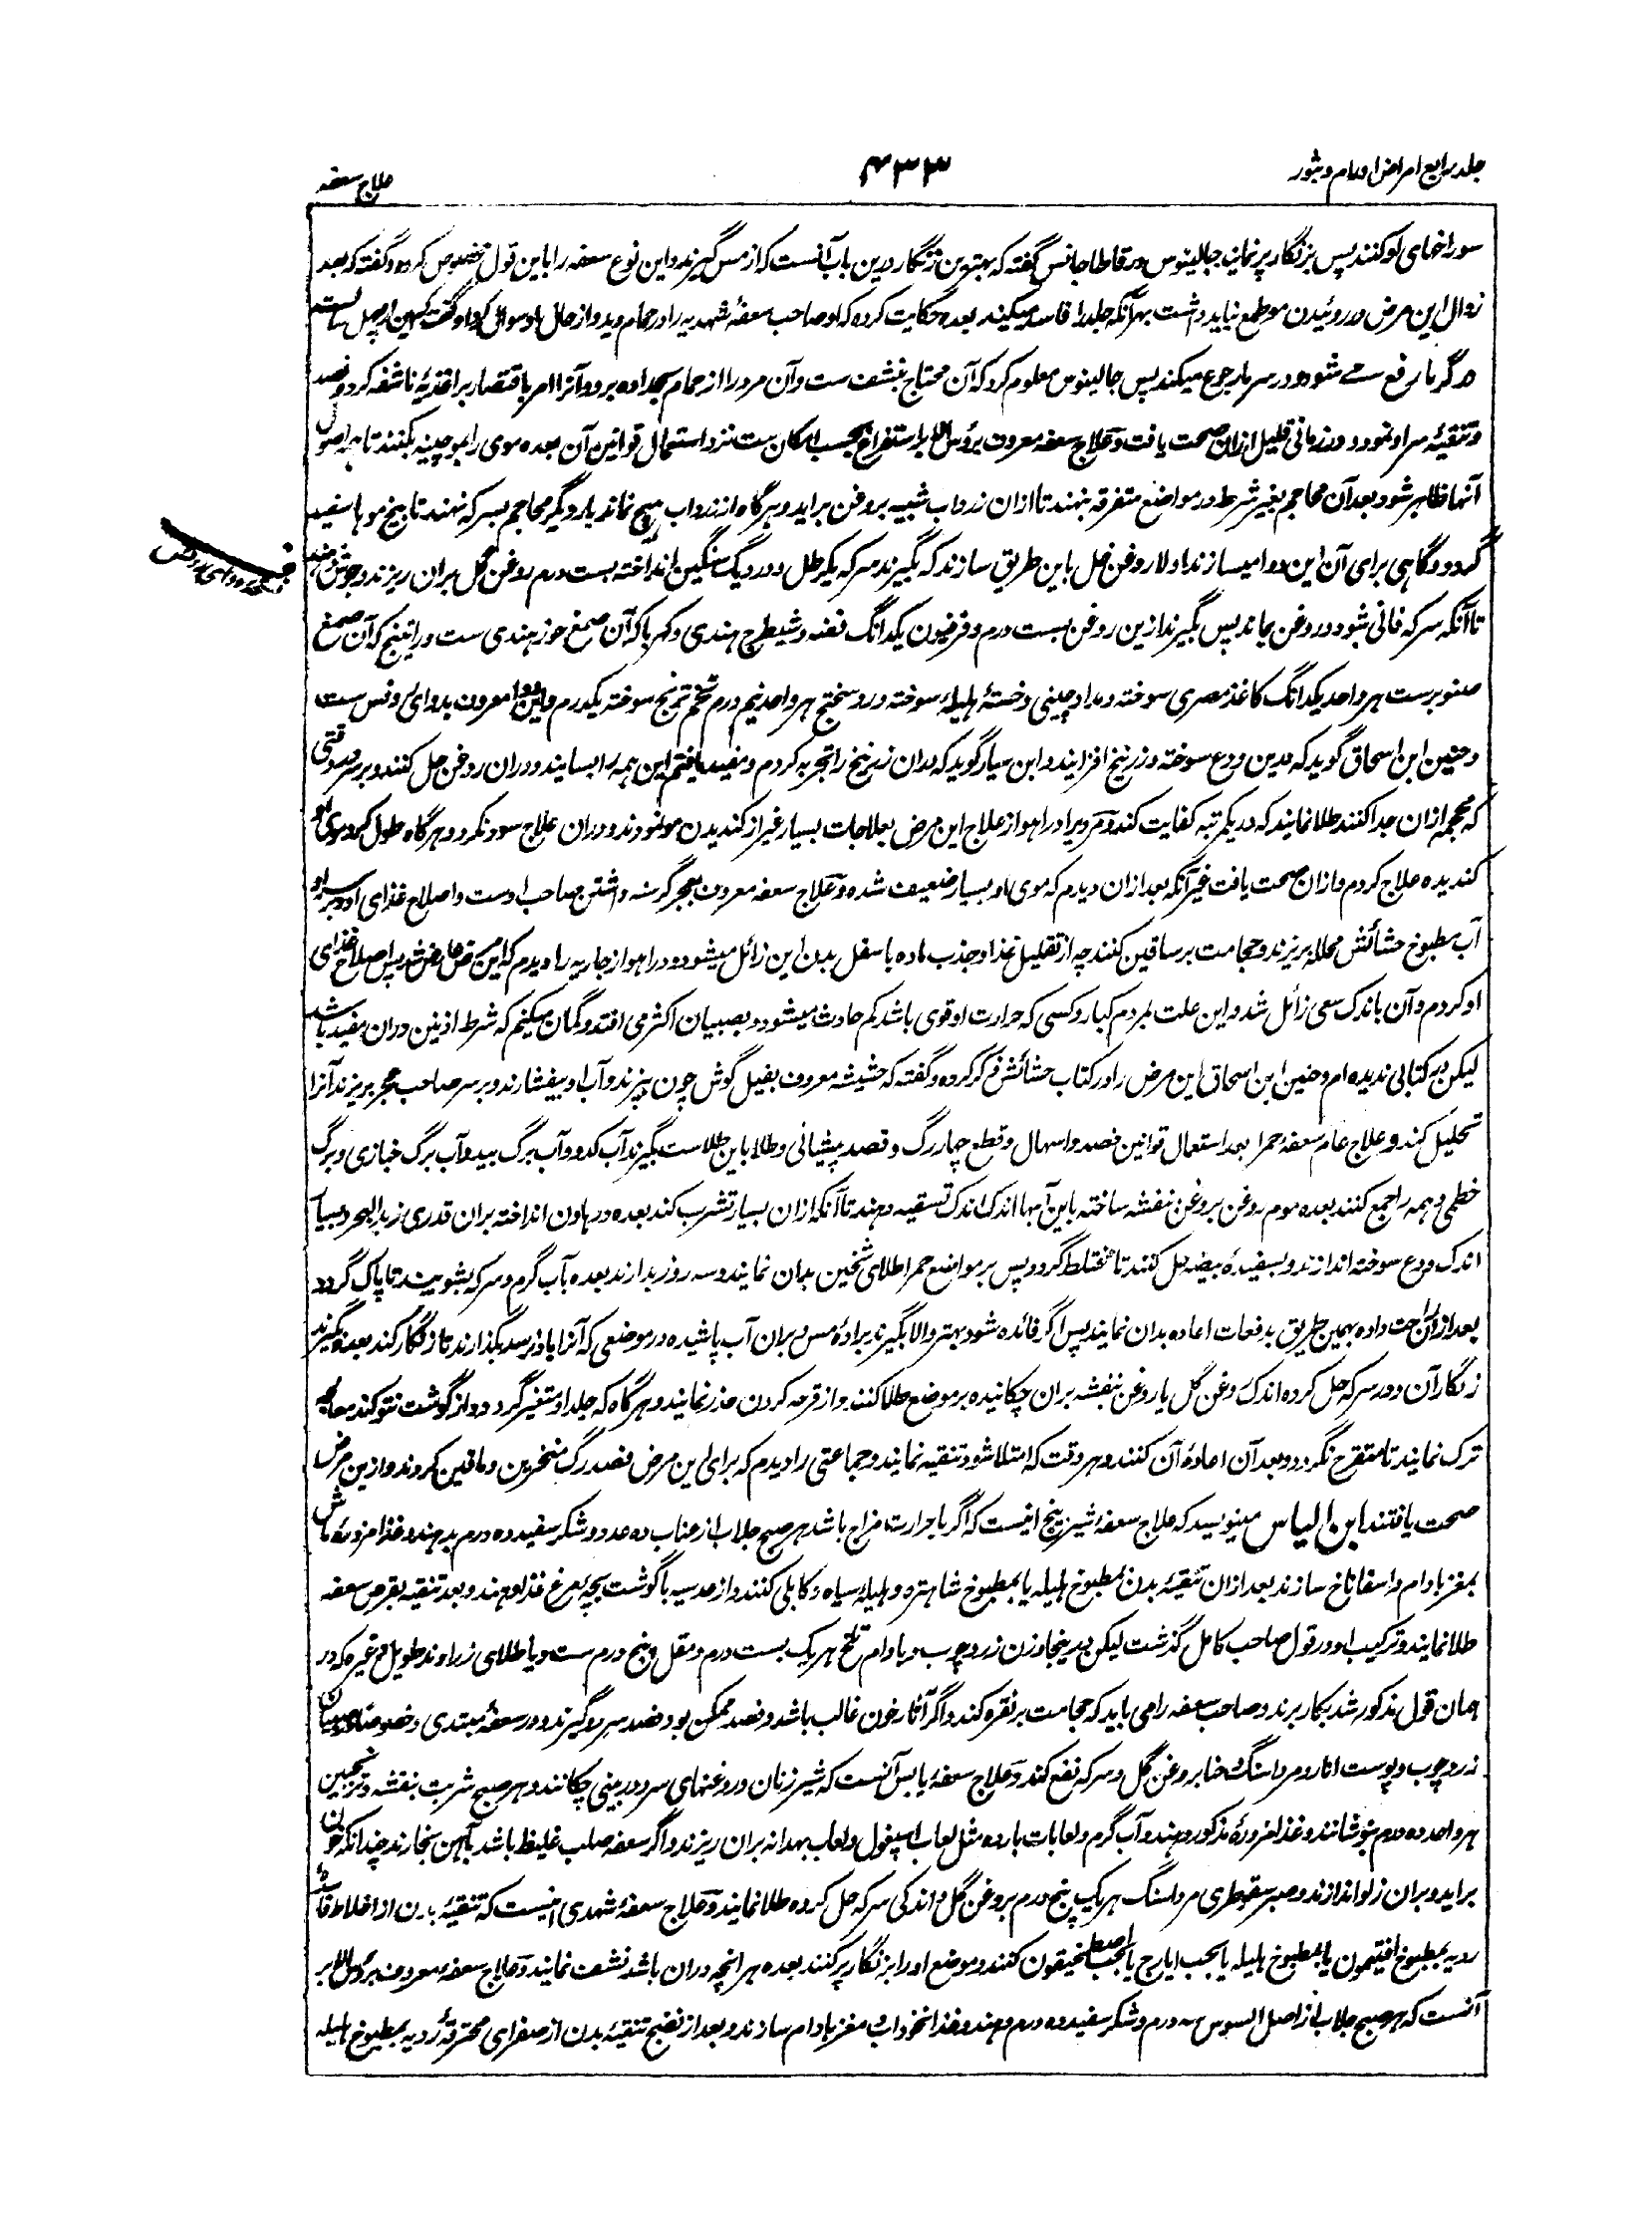 جلد رابع امراض اورام و بثور
۴۳۳
علاج سعفه
سوراخهای او کنند پس بزنگار پر نمایند جالینوس در قاطاجانس گفته که بهترین زنگار درین باب آنست که از مس گیرند و این نوع سعفه را باین قول مخصوص کرده و گفته که بعد
زوال این مرض در روئیدن مو طمع نباید داشت بهر آنکه جلد را فاسد میکند بعده حکایت کرده که او صاحب سعفهٔ شهدیه را در حمام دید و از حال او سوال کرد او گفت که این از چهل سالست
در گرما رفع مے شود و در سرما رجوع میکند پس جالینوس معلوم کرد که آن محتاج بنشف ست و آن مرد را از حمام برده و آنرا امر باقتصار بر اغذیهٔ ناشفه کرد و فصد
و تنقیهٔ سر او نمود و در زمانی قلیل ازان صحت یافت و علاج سعفه معروف برؤس الابر استفراغ بحسب امکان ست نزد استعمال قوانین آن بعده موی را بموچینه بکنند تا به اصول
آنها ظاهر شود بعد آن محاجم بغیر شرط در مواضع متفرقه بنهند تا ازان زرداب شبیه بروغن براید و هرگاه از زرداب هیچ نماند بار دیگر محاجم بسر که نهند تا بیخ موها سفید
گردد و گاهی برای آن این دوا میسازند اولا روغن خل باین طریق سازند که بگیرند سرکه یکرطل و در دیگ سنگین انداخته بست درم روغن گل بران ریزند و جوش دهند
تا آنکه سرکه فانی شود و روغن بماند پس بگیرند ازین روغن بست درم و فرفیون یکدانگ فضه و شیطرج هندی و کهربا که آن صمغ جوز هندی ست و راتینج که آن صمغ
صنوبرست هر واحد یکدانگ کاغذ مصری سوخته و مداد چینی و خستهٔ هلیله سوخته و روسختج هر واحد نیم درم تخم ترنج سوخته یکدرم و این دوا معروف بدوای لروفس ست
و حنین ابن اسحاق گوید که درین ودع سوخته و زرنیخ افزایند و ابن سیار گوید که دران زرنیخ را تجربه کردم و مفید یافتم این همه را بسایند و دران روغن حل کنند و بر سر وقتی
که محجمه ازان جدا کنند طلا نمایند که در یکمرتبه کفایت کند و مردیرا در اهواز علاج این مرض بعلاجات بسیار غیر از کندیدن مو نمودند و دران علاج سود نکرد و هرگاه طول کرد موی او
کندیده علاج کردم و ازان صحت یافت غیر آنکه بعد ازان دیدم که موی او بسیار ضعیف شده و علاج سعفه معروف بعجر گرسنه داشتن صاحب اوست و اصلاح غذای او و بر سر او
آب مطبوخ حشائش محلله بریزند و حجامت بر ساقین کنند چه از تقلیل غذا و جذب ماده باسفل بدن این زائل میشود و در اهواز جاریه را دیدم که این مرض عارض شد پس اصلاح غذای
او کردم و آن باندک سعی زائل شد و این علت بمردم کبار و کسی که حرارت او قوی باشد کم حادث میشود و بصبیان اکثر می افتد و گمان میکنم که شرط اذنین دران مفید باشد
لیکن در کتابی ندیده ام و حنین ابن اسحاق این مرض را در کتاب حشائش ذکر کرده و گفته که حشیشه معروف بفیل گوش چون بپزند و آب او بیفشارند و بر سر صاحب عجر بریزند آنرا
تحلیل کند و علاج عام سعفهٔ حمرا بعد استعمال قوانین فصد و اسهال و قطع چهار رگ و فصد پیشانی و طلا باین طلاست بگیرند آب کدو و آب برگ بید و آب برگ خبازی و برگ
خطمی و همه را جمع کنند بعده موم روغن بروغن بنفشه ساخته باین آبها اندک اندک تسقیه دهند تا آنکه ازان بسیار تشرب کند بعده در هاون انداخته بران قدری زبد البحر و بسیار
اندک ودع سوخته اندازند و بسفیدهٔ بیضه حل کنند تا مختلط گردد پس بر مواضع حمرا طلای ثخین بدان نمایند و سه روز بدارند بعده بآب گرم و سرکه بشویند تا پاک گردد
بعد ازان راحت داده بهمین طریق بدفعات اعاده بدان نمایند پس اگر فائده شود بهتر والا بگیرند برادهٔ مس و بران آب پاشیده در موضعی که آنرا باد نرسد بگذارند تا زنگار کند بعده بگیرند
زنگار آن و در سرکه حل کرده اندک روغن گل یا روغن بنفشه بران چکانیده بر موضع طلا کنند و از قرحه کردن حذر نمایند و هرگاه که جلد او متغیر گردد و از گوشت نتو کند معالجه
ترک نمایند تا متقرح نگردد و بعد آن اعادهٔ آن کنند و هر وقت که امتلا شود تنقیه نمایند و جماعتی را دیدم که برای این مرض فصد رگ منخرین و ماقین کردند و ازین مرض
صحت یافتند ابن الیاس مینویسد که علاج سعفهٔ شیرینج اینست که اگر با حرارت مزاج باشد هر صبح جلاب از عناب ده عدد و شکر سفید ده درم بدهند و غذا مزورهٔ ماش
بمغز بادام و اسفاناخ سازند بعد ازان تنقیهٔ بدن بمطبوخ هلیله یا بمطبوخ شاهتره و هلیلهٔ سیاه و کابلی کنند و از عدسیه با گوشت بچهٔ مرغ غذا دهند و بعد تنقیه بقرص سعفه
طلا نمایند و ترکیب او در قول صاحب کامل گذشت لیکن درینجا وزن زردچوب و بادام تلخ هر یک بست درم و مقل پنج درم ست و یا طلای زراوند طویل و غیره که در
همان قول مذکور شد بکار برند و صاحب سعفه را می باید که حجامت بر نقره کند و اگر آثار خون غالب باشد و فصد ممکن بود فصد سررو گیرند و در سعفهٔ مبتدی و خصوصا در صبیان
زردچوب و پوست انار و مرداسنگ و حنا بروغن گل و سرکه نفع کند و علاج سعفهٔ یابس آنست که شیر زنان و روغنهای سرد در بینی چکانند و هر صبح شربت بنفشه و ترنجبین
هر واحد ده درم بنوشانند و غذا مزورهٔ مذکوره دهند و آب گرم و لعابات بارده مثل لعاب اسپغول و لعاب بهدانه بران ریزند و اگر سعفه صلب غلیظ باشد بآهن بخارند چندانکه خون
براید و بران زلو اندازند و صبر سقوطری مرداسنگ هر یک پنج درم بروغن گل و اندکی سرکه حل کرده طلا نمایند و علاج سعفهٔ شهدی اینست که تنقیهٔ بدن از اخلاط فاسدهٔ
ردیه بمطبوخ افتیمون یا بمطبوخ هلیله یا بحب ایارج یا بحب اصطمخیقون کنند و موضع او را بزنگار پر کنند بعده هر آنچه دران باشد نشف نمایند و علاج سعفه معروف برؤس الابر
آنست که هر صبح جلاب از اصل السوس سه درم و شکر سفید ده درم دهند و غذا نخوداب و مغز بادام سازند و بعد از نضج تنقیهٔ بدن از صفرای محترقهٔ ردیه بمطبوخ هلیله